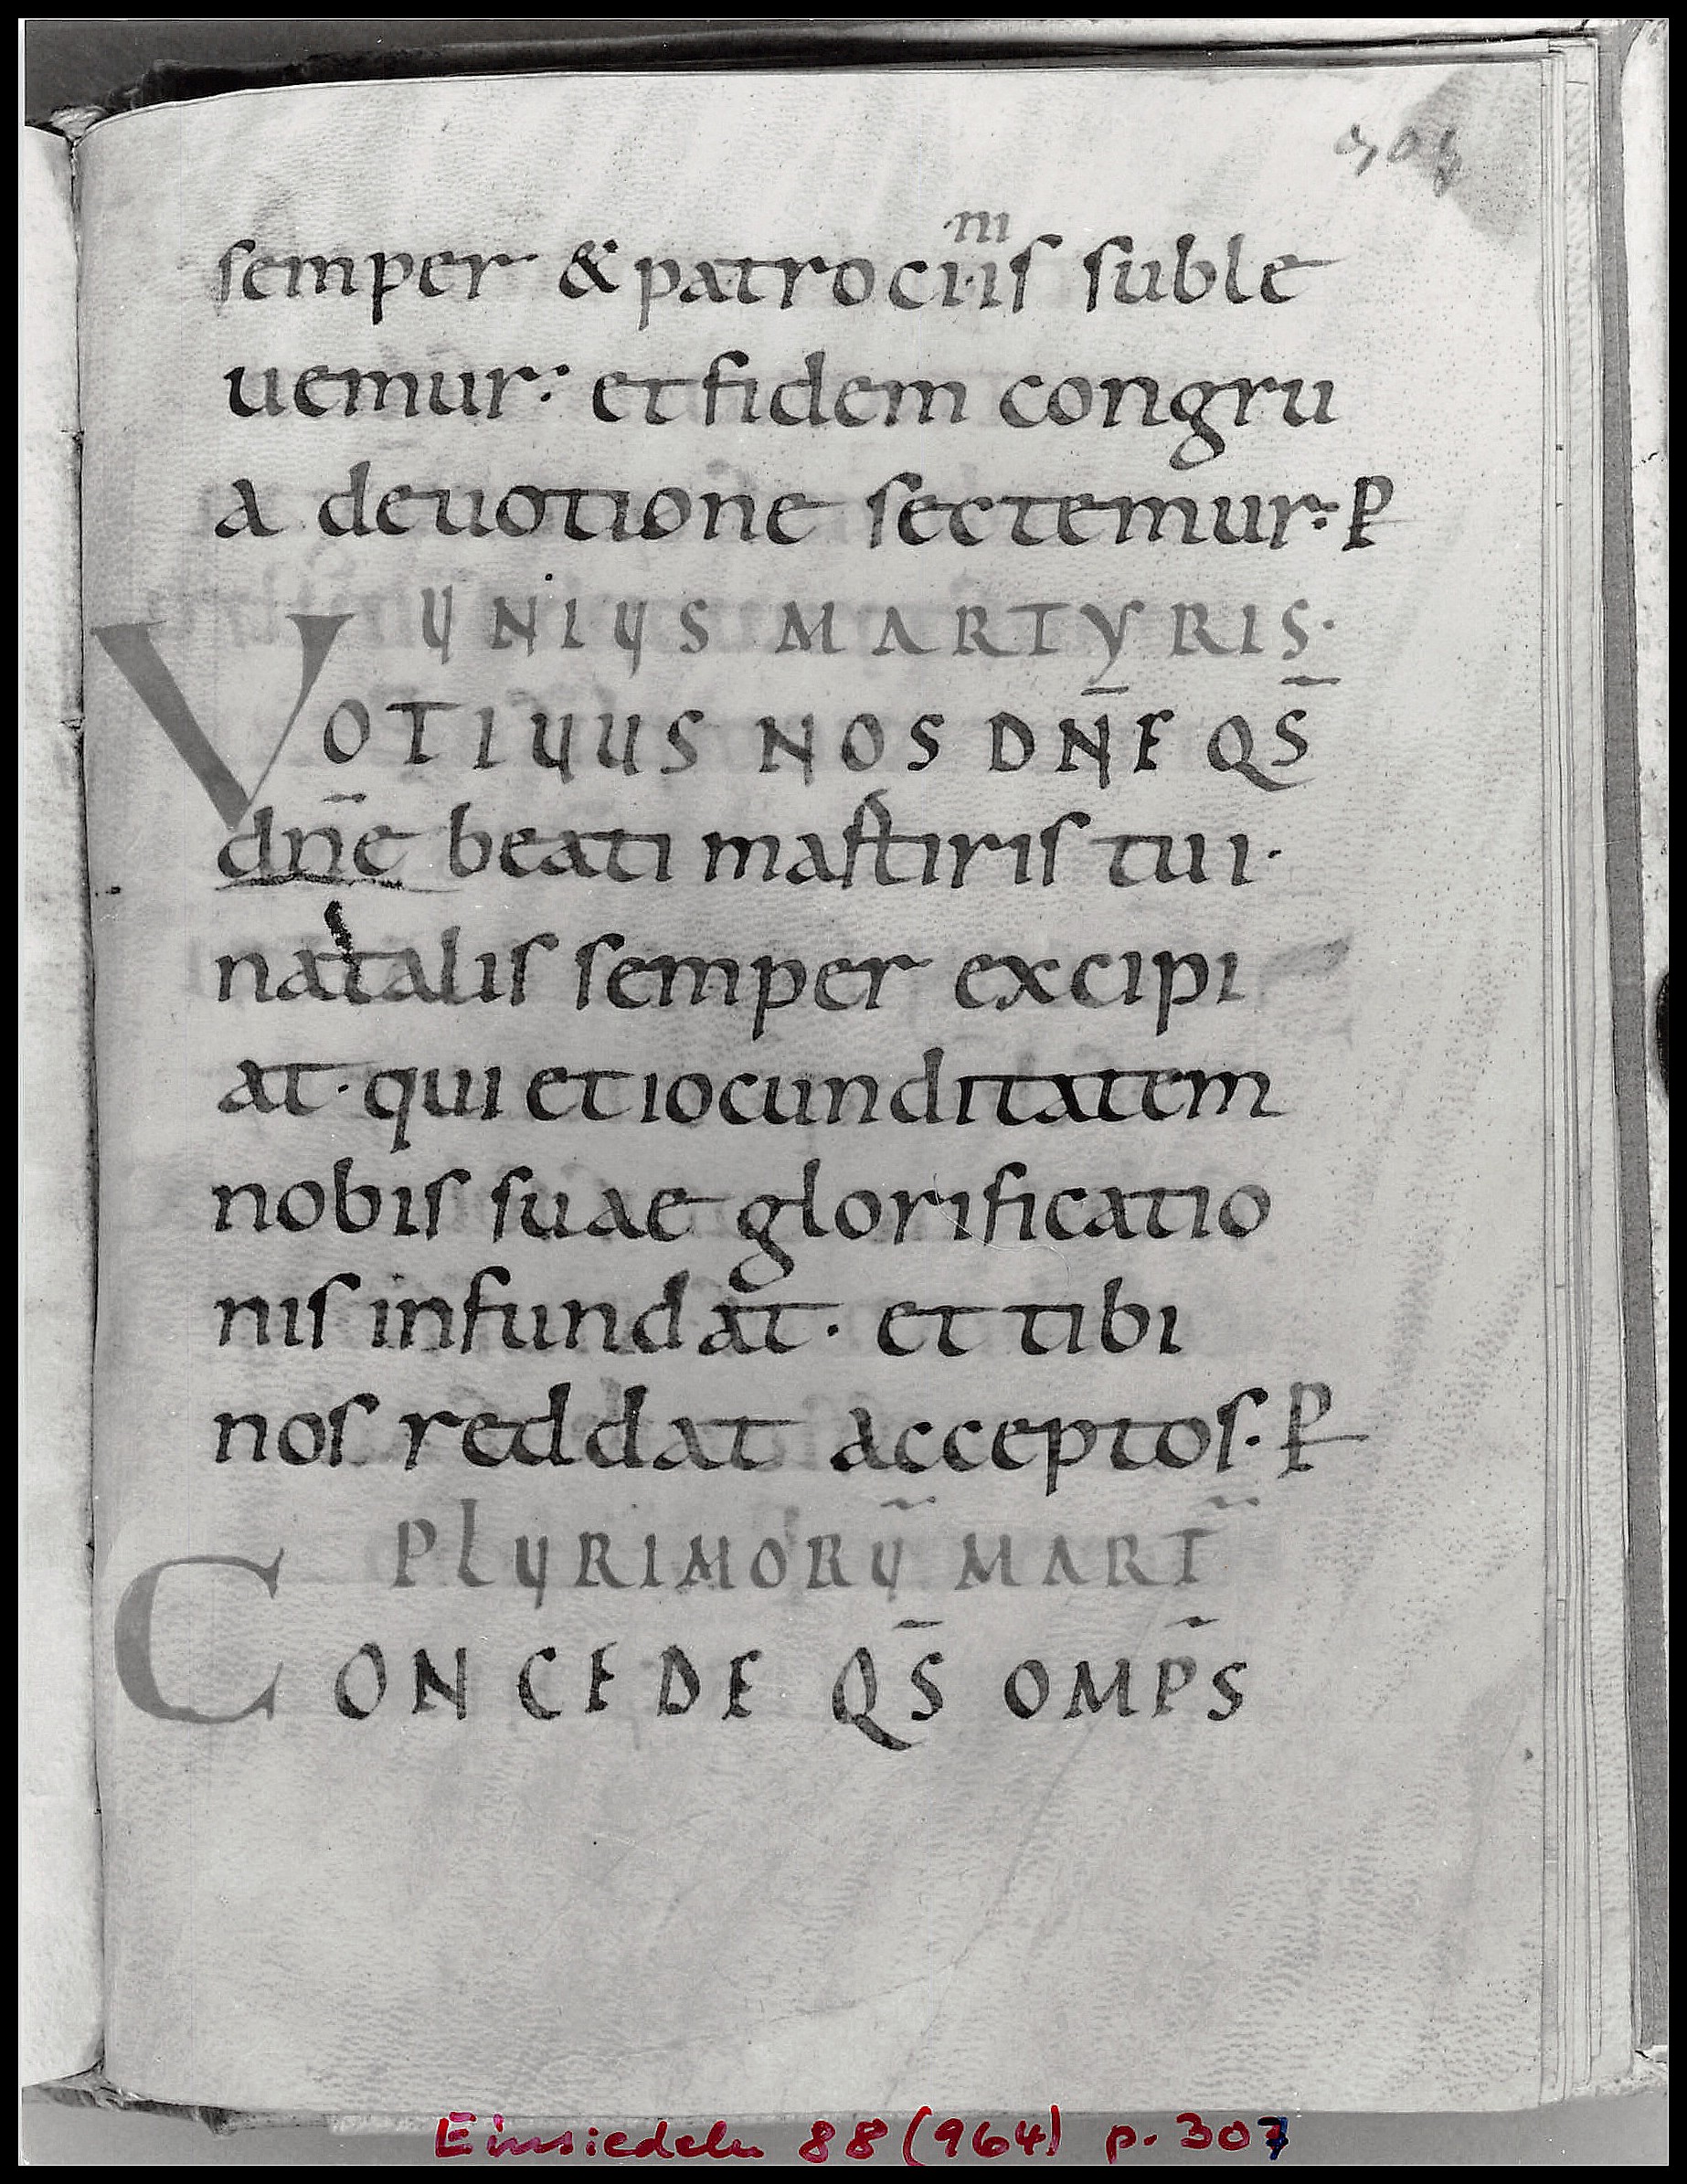 307
ni
semper & patrociis suble
uemur: et fidem congru
a deuotione sectemur: p̱
UNIUS MARTYRIS.
VOTIUUS NOS DN̄E QS̄
dn̄e beati martiris tui.
natalis semper excipi
at. qui et iocunditatem
nobis suae glorificatio
nis infundat. et tibi
nos reddat acceptos. p̱
PLURIMORŪ MART̄
CONCEDE QS̄ OMP̄S
Einsiedeln 88 (964) p. 307